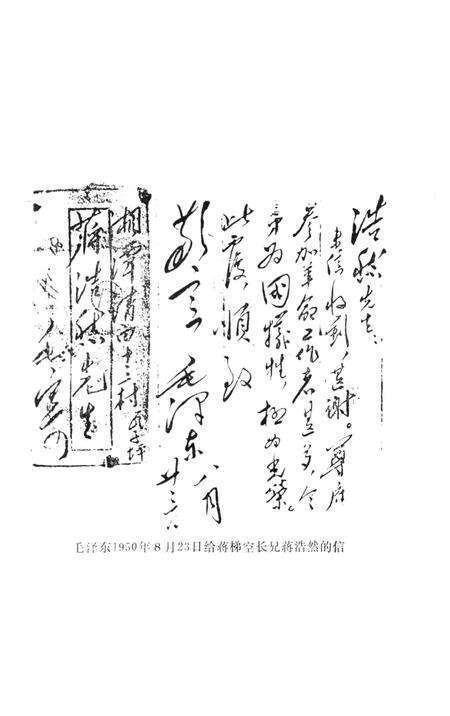 浩然先生：
来信收到，甚谢。尊府
参加革命工作者甚多，令
弟为國犧牲，极为光榮。
此覆，順致
敬意
毛澤东 八月
廿三日
湘潭清西十三村
蔣浩然先生
毛泽东1950年8月23日给蒋梯空长兄蒋浩然的信